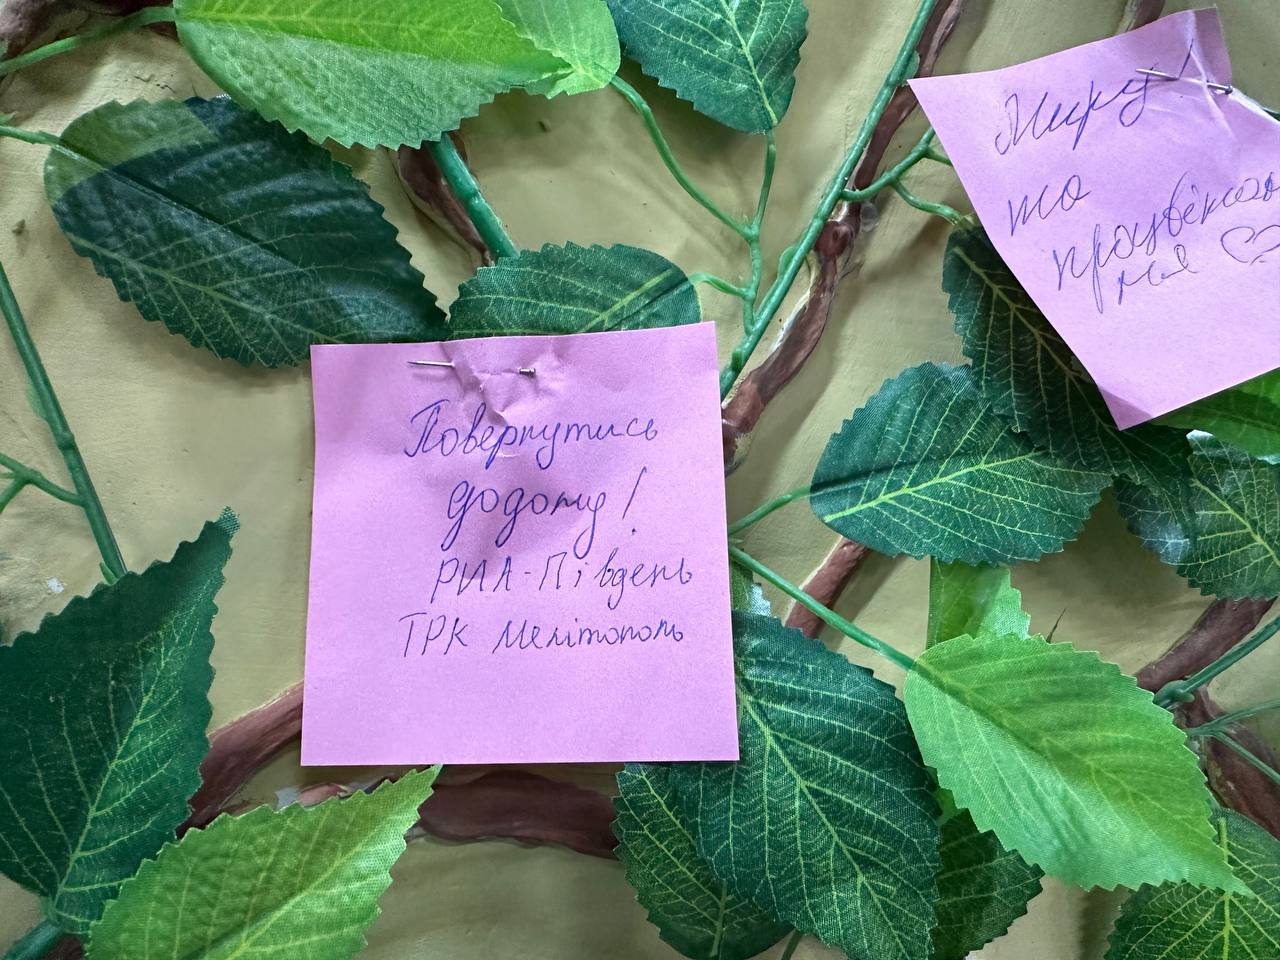 Повернутись
додому!
РИА-Південь
ТРК Мелітополь
Миру!
та
процвітан
ня ♡